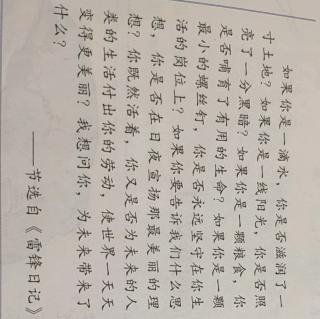 如果你是一滴水，你是否滋润了一
寸土地？如果你是一线阳光，你是否照
亮了一分黑暗？如果你是一颗粮食，你
是否哺育了有用的生命？如果你是一颗
最小的螺丝钉，你是否永远坚守在你生
活的岗位上？如果你要告诉我们什么思
想，你是否在日夜宣扬那最美丽的理
想？你既然活着，你又是否为未来的人
类的生活付出你的劳动，使世界一天天
变得更美丽？我想问你，为未来带来了
什么？
——节选自《雷锋日记》